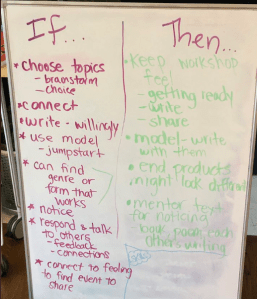 If...
* choose topics
- brainstorm
- choice
* connect
* write - willingly
* use model
- jumpstart
* can find
genre or
form that
works
* notice
* respond & talk
to others
- feedback
- connections
* connect to feeling
to find event to
share
Then...
* Keep workshop
feel
- getting ready
- write
- share
* model - write
with them
* end products
might look different
* mentor text
for noticing
book,
each
others writing